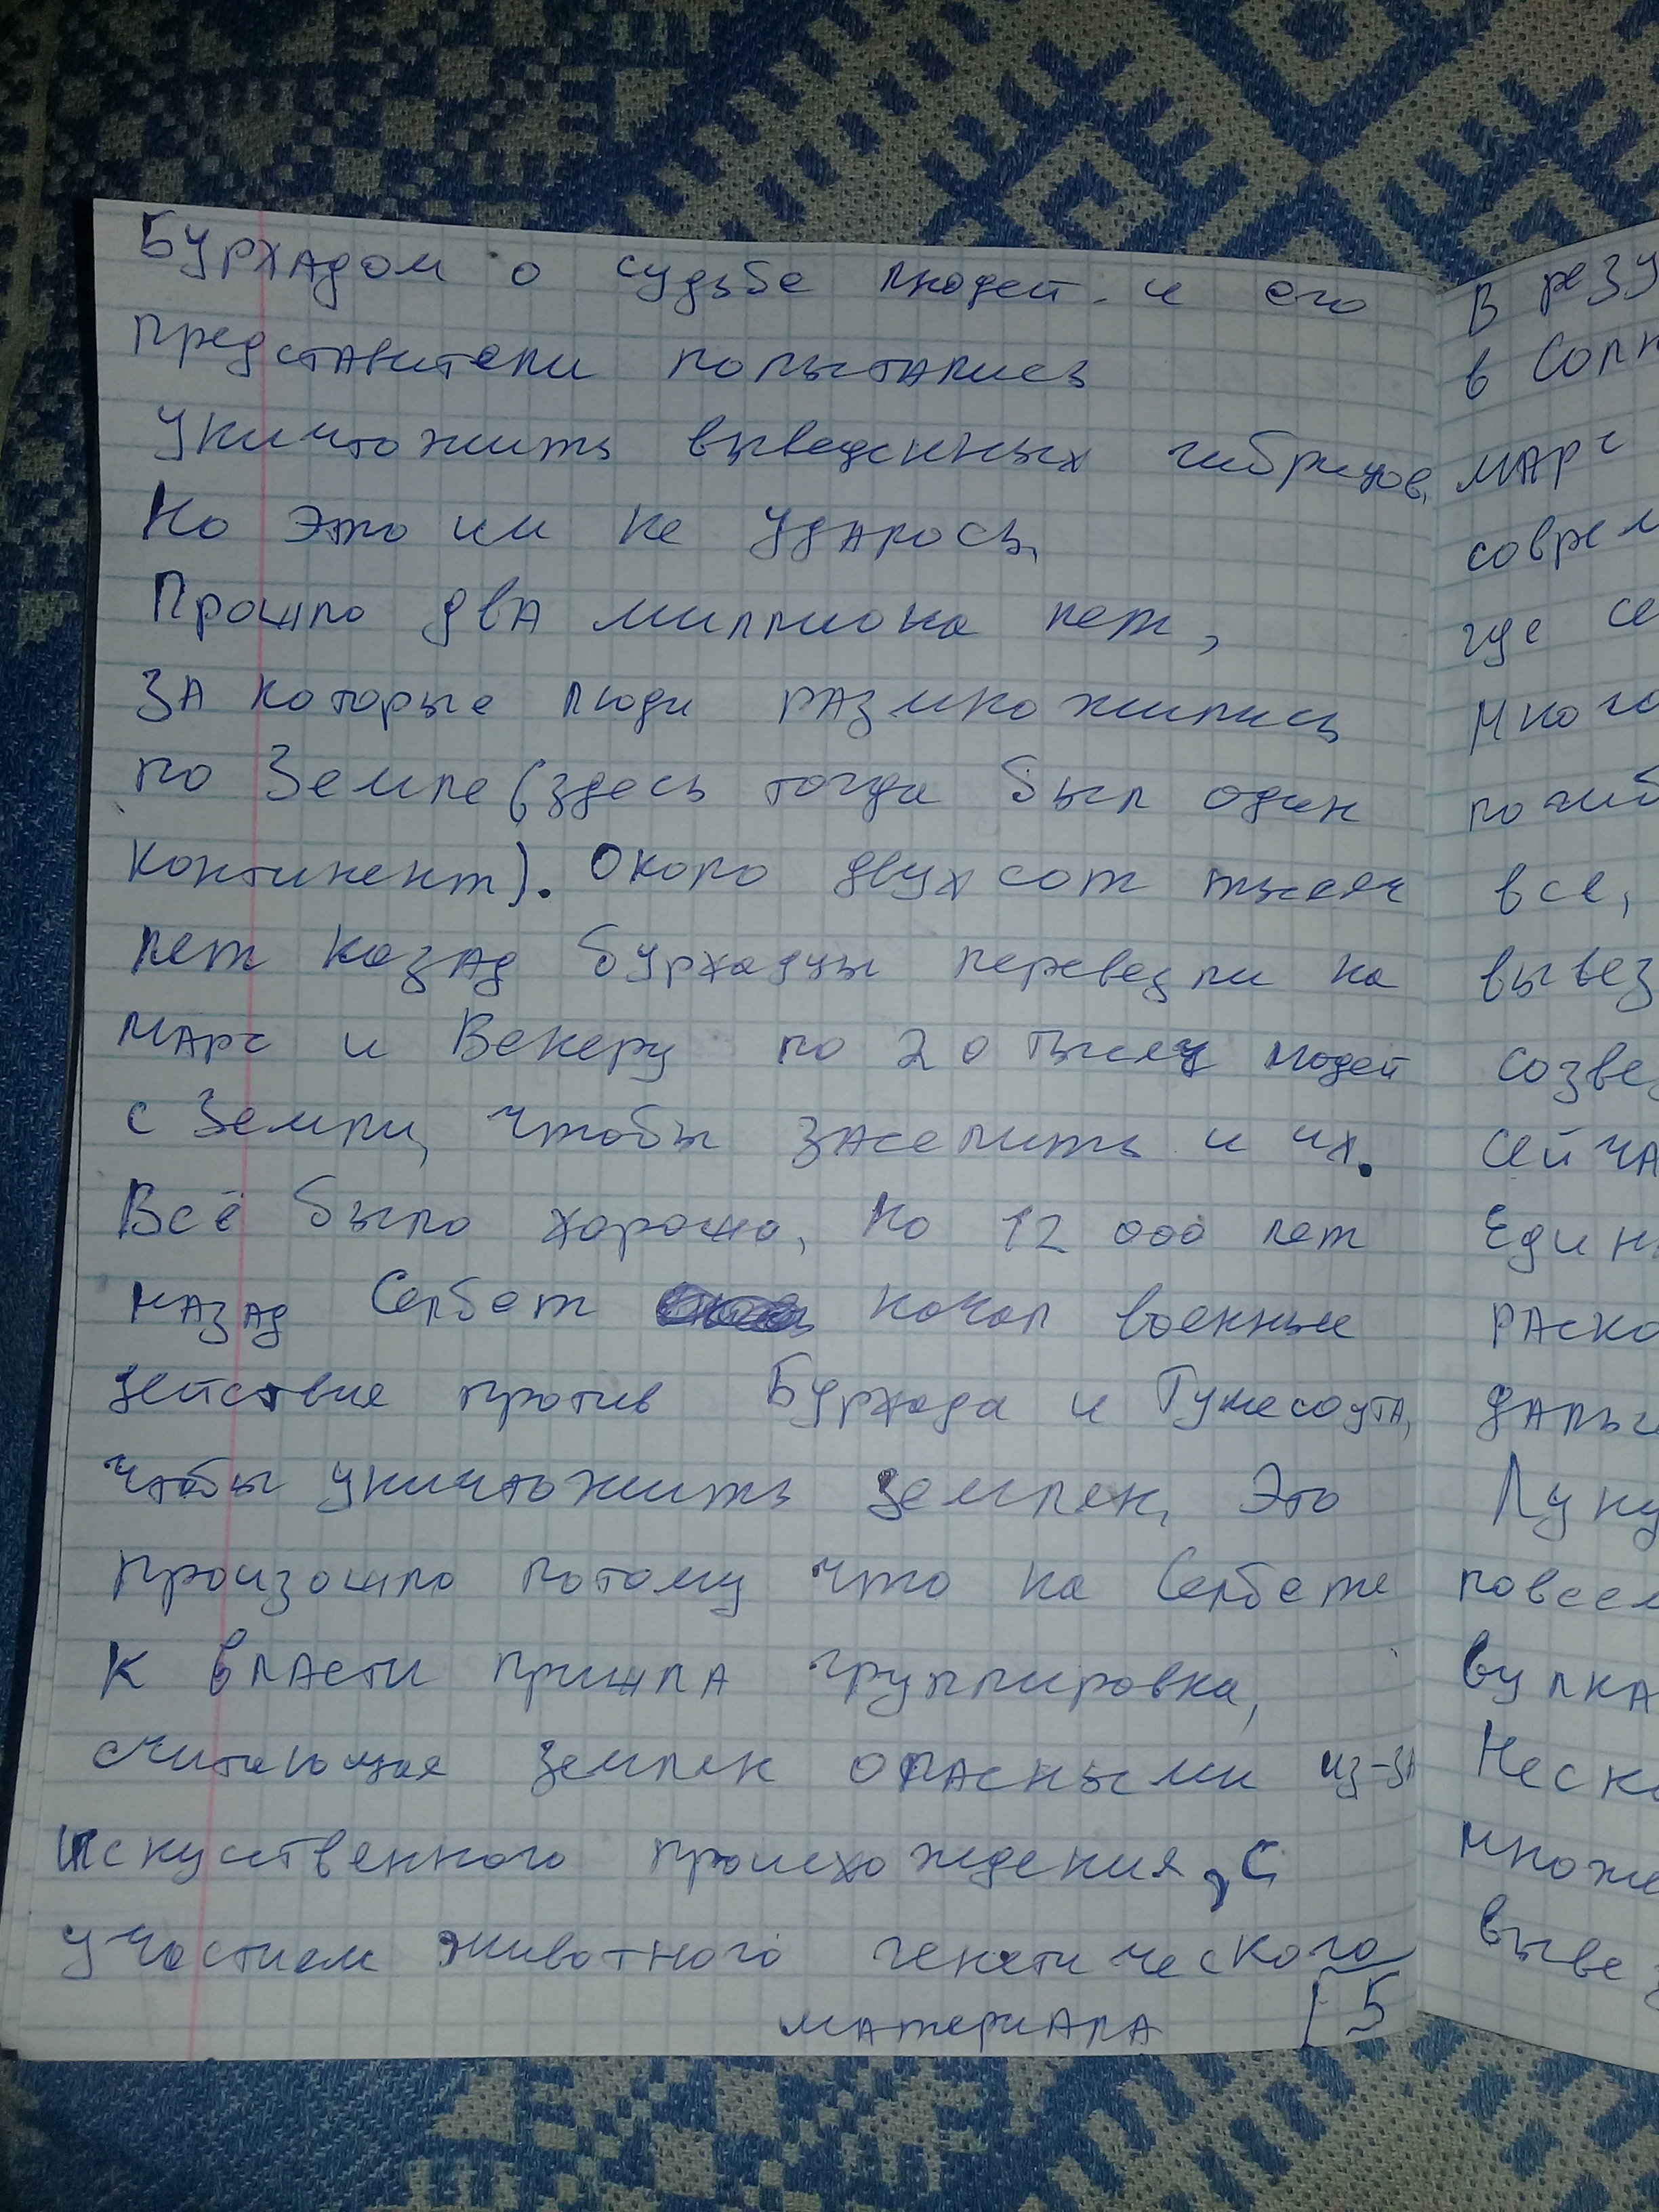 Бурхадом о судьбе людей и его
представители попытались
уничтожить выведенных гибридов.
Но это им не удалось.
Прошло два миллиона лет,
за которые люди размножились
по Земле (здесь тогда был один
континент). Около двухсот тысяч
лет назад бурхадцы перевезли на
Марс и Венеру по 20 тысяч людей
с Земли, чтобы заселить и их.
Всё было хорошо, но 12 000 лет
назад Селбет начал военные
действие против Бурхада и
чтобы уничтожить землян. Это
произошло потому что на Селбете
к власти пришла группировка,
считающая землян опасными из-за
искуственного происхождения, с
участием животного генетического
материала
5
В резу
в Солн
Марс
соврем
где се
много
погиб
все,
вывез
созвез
сейча
Един
раско
дальн
Луну
повсем
вулка
Неско
множе
вывез